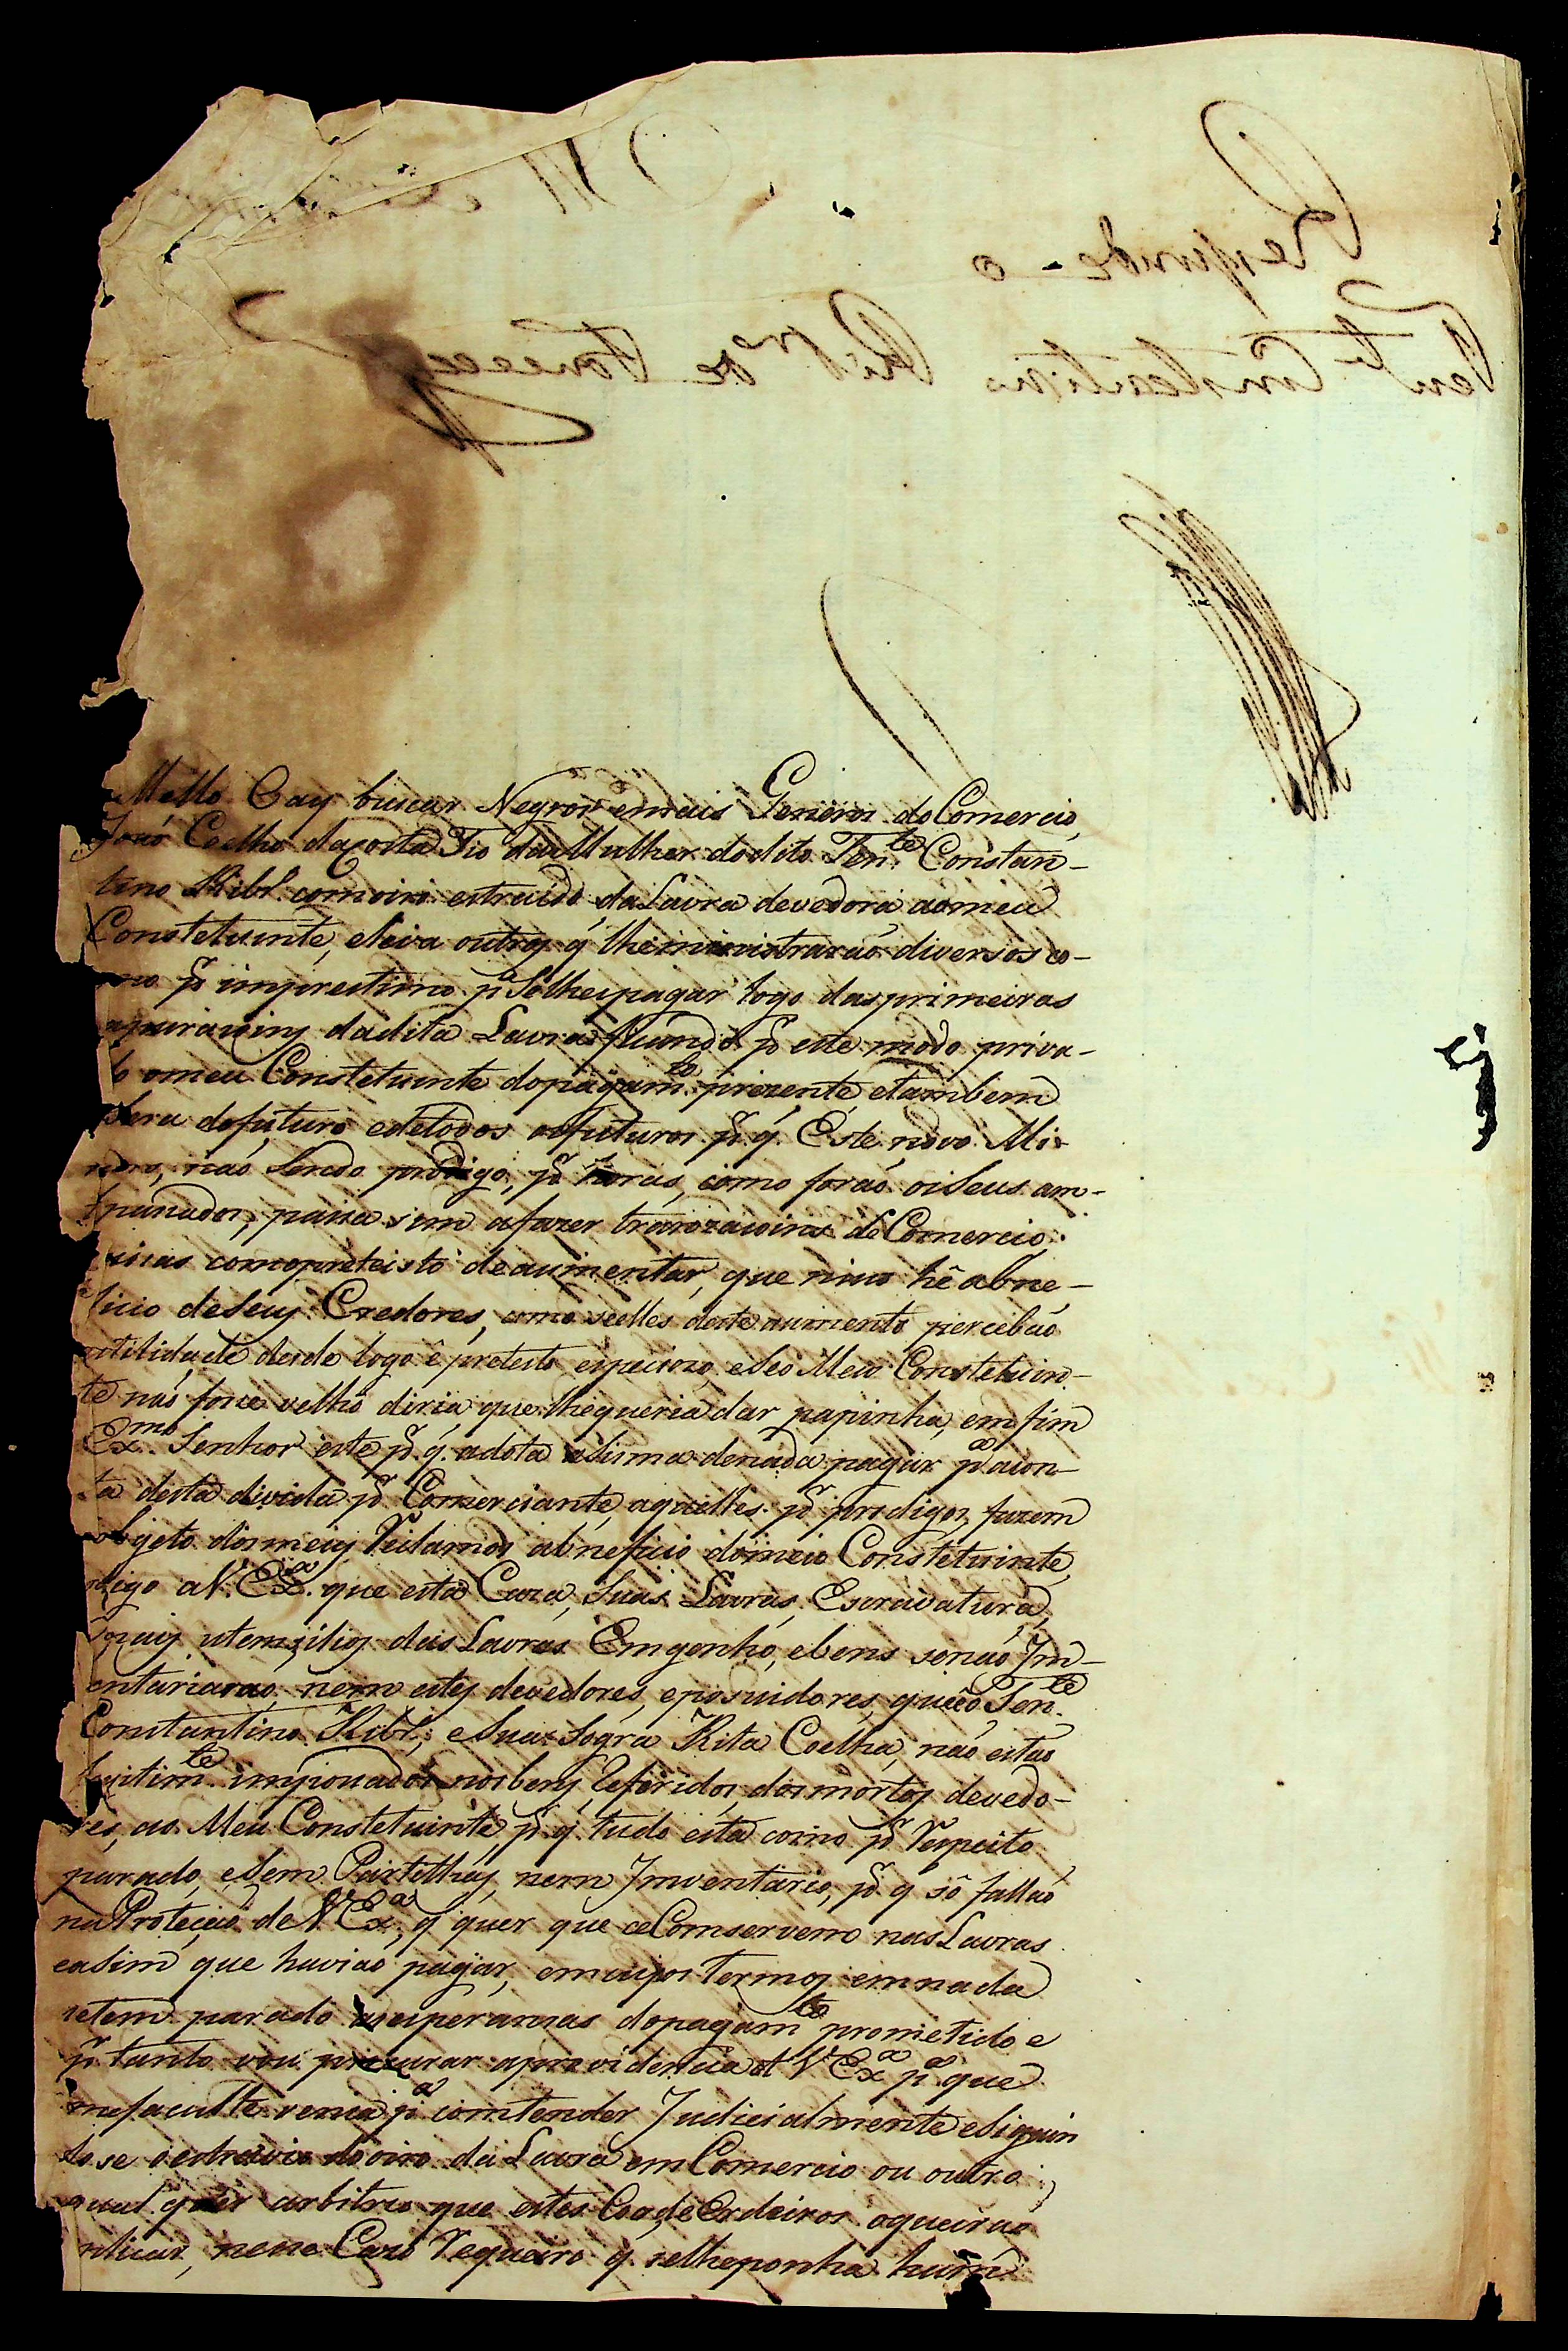 Mello Cay buscar Negros emais Generos do Comercio,
João Coelho dacosta Tio daMulher dodito Ten.te Constan-
tino Ribr.o com oiro estraido da Lavra devedora aomeu
Constetuinte, eleva outros q̃ lheministrarão diversos co-
mo p.r imprestimo p.a Selhespagar logo dasprimeiras
apuraçoins dadita Lavra ficando p.r este modo priva-
do omeu Constetuinte dopagam.to prezente, etambem
sera dofuturo edetodos osfuturos p.r q̃. Este novo Mi-
neiro, não Sendo prodigo, p.r herras, como forão osSeus an-
passa sim afazer tranzaçoins de Comercio
comopreteisto deaumentar, que nisso hê abne-
ficio deseus Credores, como seelles deste aumento percebão
utilidade desde logo ê pretesto especiozo, eSeo Meu Constetuin-
te não fosse velho diria que lhequeria dar papinha, emfim
Ex.mo Senhor este p.r q̃. adota asisma denada pagar p.a acon-
ta desta divida p.r Comerciante, aquelles p.r prodigos, fazem
objeto dosmeus Reclamos abneficio domeu Constetuinte,
digo aV. Ex.a que esta Caza, suas Lavras, Escravatura,
utemsilios das Lavras Emgenho, ebens senão Im-
entariarão nem estes devedores, eposuidores, quehêo Ten.te
Constantino Ribr.o, eSua Sogra Rita Coelha, não estão
legitim.te impossados nosbens Referidos, dos mortos devedo-
res, ao Meu Constetuinte, p.r q̃ tudo esta como p.r Respeito
parado, eSem Partelhas, nem Imventario, p.r q̃ sô fallão
naProteção de V. Ex.a, q̃ quer que ceComservem nas Lavras
easim que havião pagar, emcujos Termos emnada
setem parado as esperansas dopagam.to prometido e
p.r tanto vou procurar aprovidencia d V. Ex.a p.a que
mefaculte venia p.a comtender Judicialmente eSiguin
dose oestravio dooiro da Lavra em Comercio ou outro
qual quer arbitrio que estes Coade Erdeiros oqueirão
plicar, nesse Cazo Requeiro q̃ selheponha hum